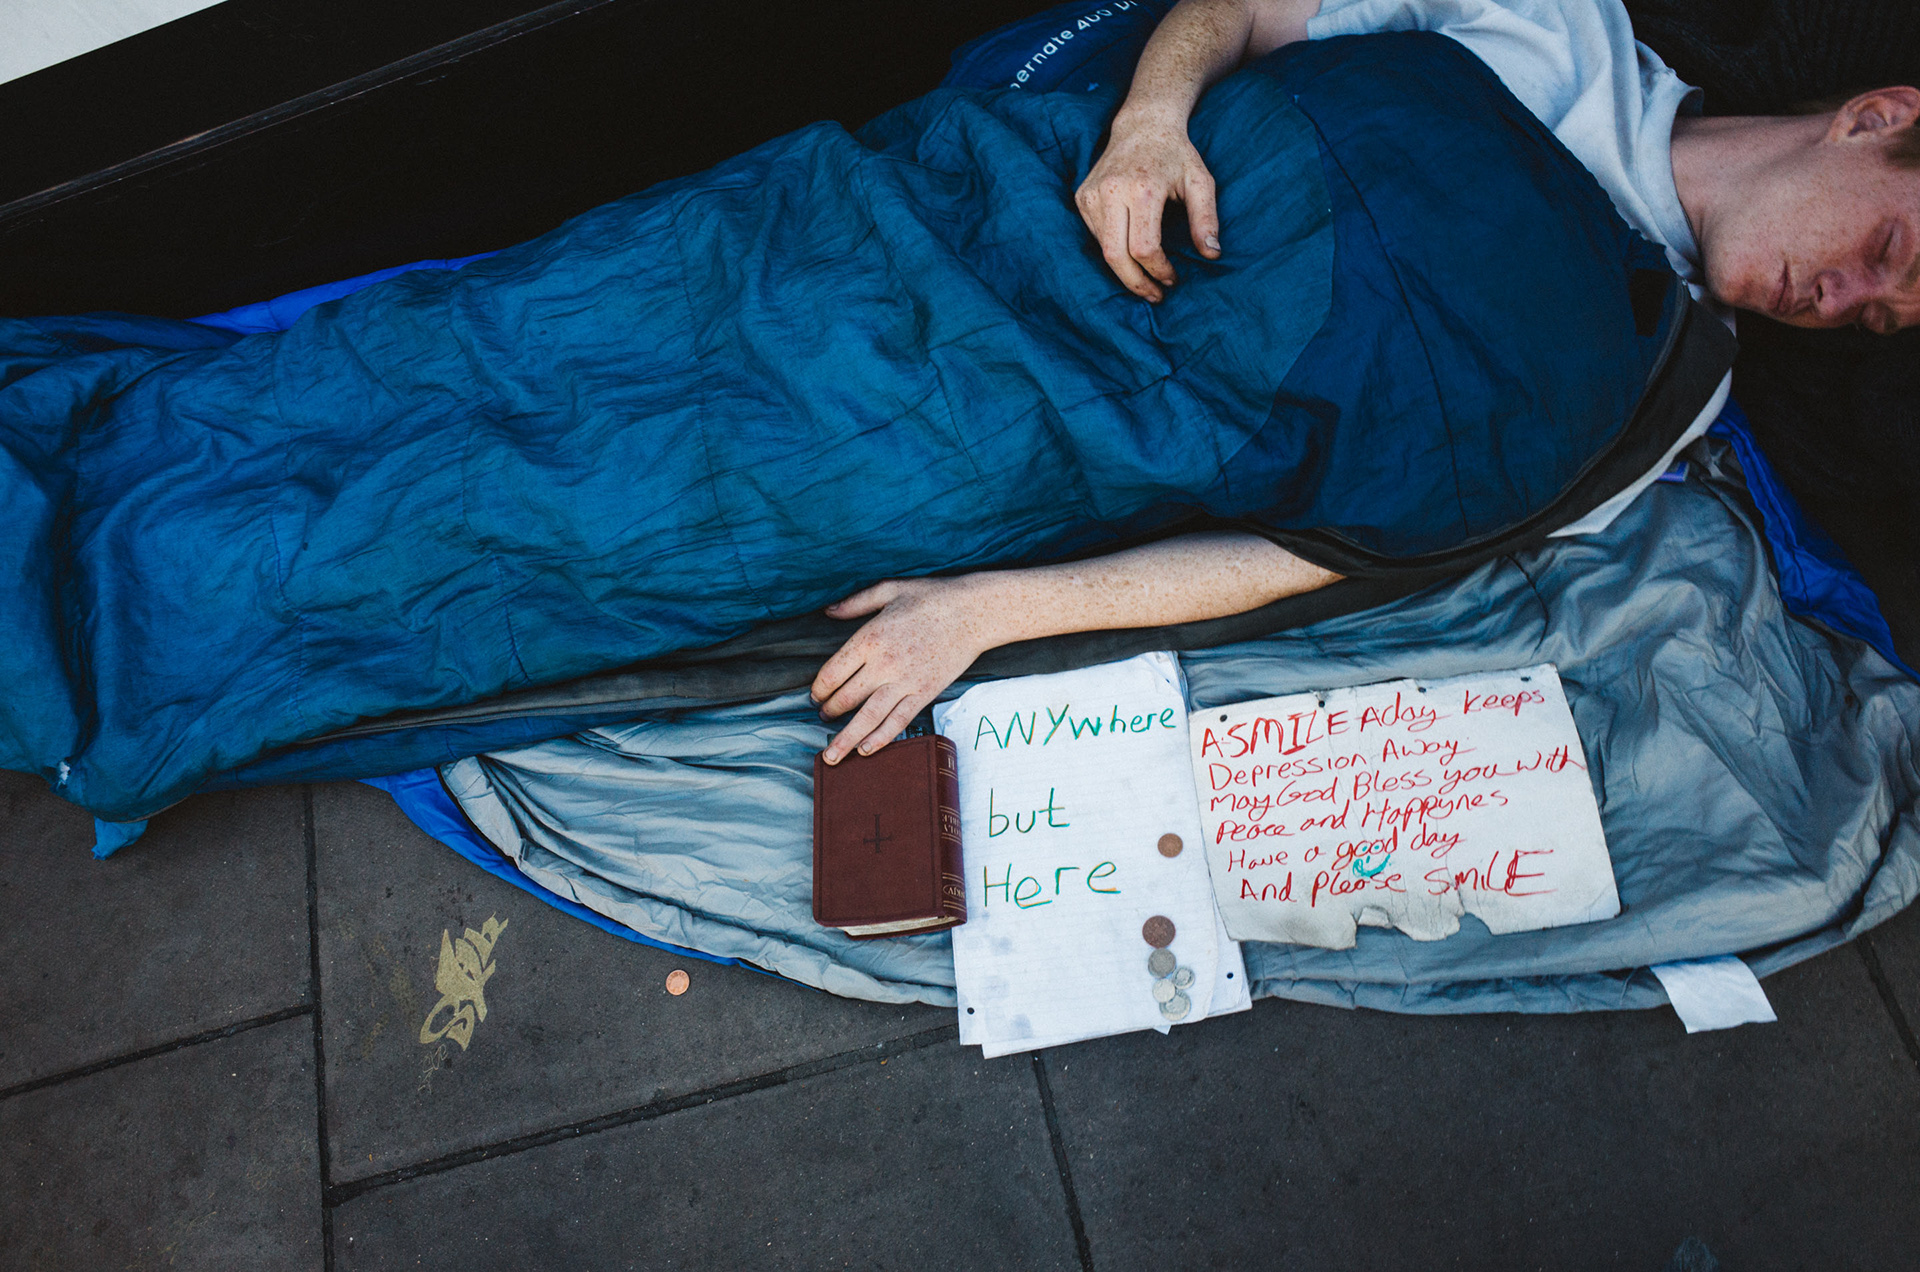 ernate 400
ANYwhere
but
Here
A SMILE Aday keeps
Depression Away
may God Bless you with
Peace and Happynes
Have a good day
And Please SMILE
HOLY
BIBLE